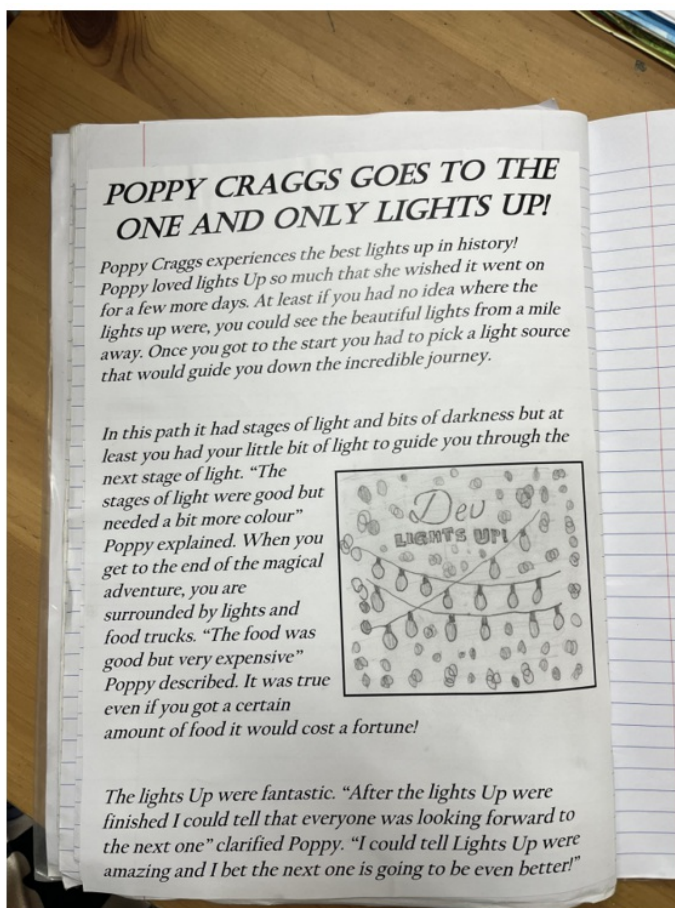 POPPY CRAGGS GOES TO THE
ONE AND ONLY LIGHTS UP!
Poppy Craggs experiences the best lights up in history!
Poppy loved lights Up so much that she wished it went on
for a few more days. At least if you had no idea where the
lights up were, you could see the beautiful lights from a mile
away. Once you got to the start you had to pick a light source
that would guide you down the incredible journey.
In this path it had stages of light and bits of darkness but at
least you had your little bit of light to guide you through the
next stage of light. “The
stages of light were good but
needed a bit more colour”
Poppy explained. When you
get to the end of the magical
adventure, you are
surrounded by lights and
food trucks. “The food was
good but very expensive”
Poppy described. It was true
even if you got a certain
amount of food it would cost a fortune!
Dev
LIGHTS UP!
The lights Up were fantastic. “After the lights Up were
finished I could tell that everyone was looking forward to
the next one” clarified Poppy. “I could tell Lights Up were
amazing and I bet the next one is going to be even better!”